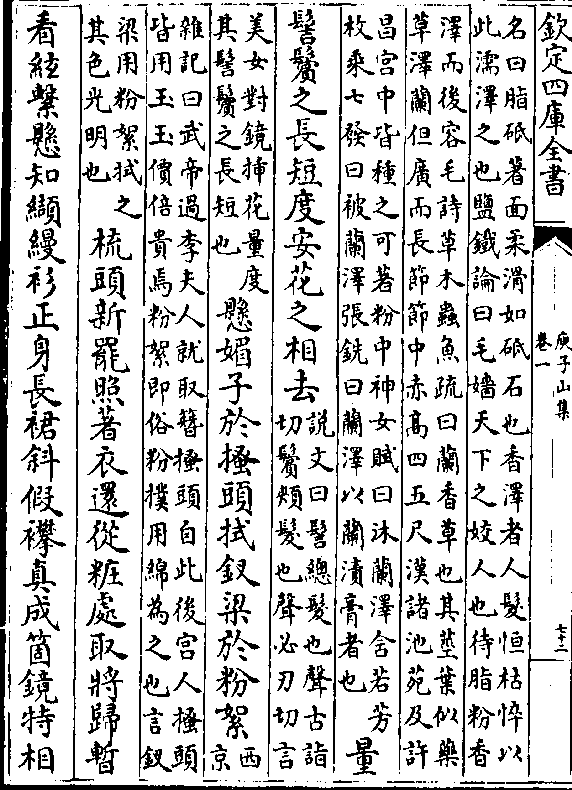 欽定四庫全書
庾子山集
卷一
七十二
名曰脂砥著面柔滑如砥石也香澤者人髮恒枯悴以
此濡澤之也鹽鐵論曰毛嬙天下之姣人也待脂粉香
澤而後容毛詩草木蟲魚疏曰蘭香草也其莖葉似藥
草澤蘭但廣而長節節中赤高四五尺漢諸池苑及許
昌宫中皆種之可著粉中神女賦曰沐蘭澤含若芳
枚乗七發曰被蘭澤張銑曰蘭澤以蘭漬膏者也
量
髻鬢之長短度安花之相去
說文曰髻總髮也聲古詣
切鬢頰髮也聲必刃切言
美女對鏡揷花量度
其髻鬢之長短也
懸媚子於搔頭拭釵梁於粉絮
西
京
雜記曰武帝過李夫人就取簪搔頭自此後宫人搔頭
皆用玉玉價倍貴焉粉絮即俗粉撲用綿為之也言釵
梁用粉絮拭之
其色光明也
梳頭新罷照著衣還從粧處取將歸暫
看絃繫懸知纈縵衫正身長裙斜假襻真成箇鏡特相